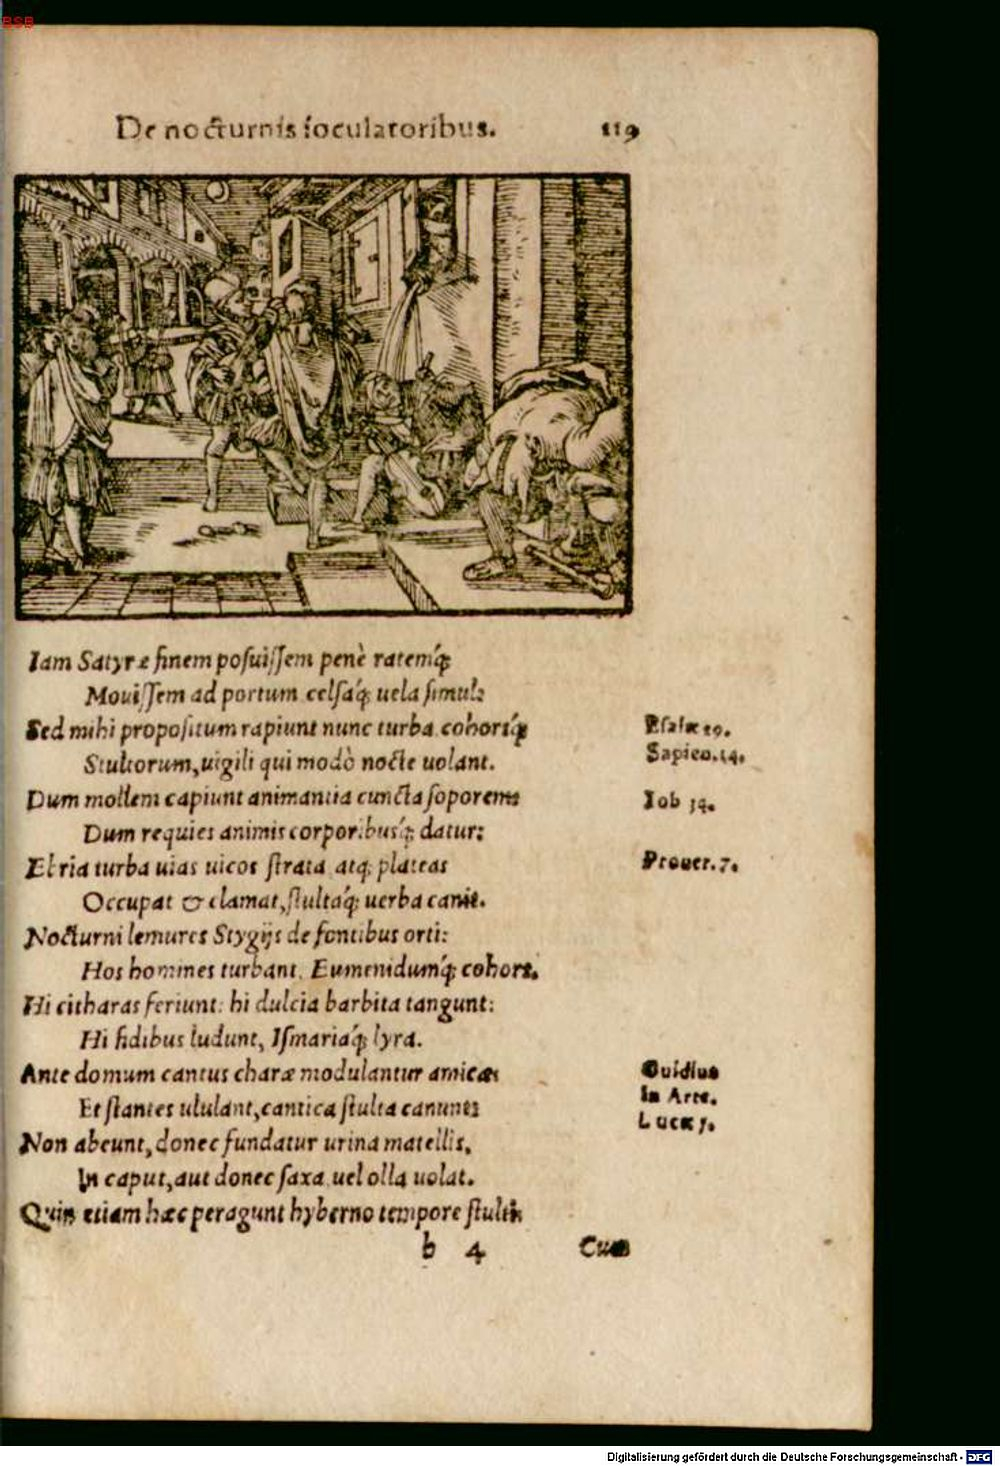 BSB
De nocturnis ioculatoribus. 119
Iam Satyræ finem posuissem penè ratemq́;
Mouissem ad portum celsaq́; uela simul:
Sed mihi propositum rapiunt nunc turba cohorsq́;
Stultorum, uigili qui modò nocte uolant.
Dum mollem capiunt animantia cuncta soporem:
Dum requies animis corporibusq́; datur:
Ebria turba uias uicos strata atq; plateas
Occupat & clamat, stultaq́; uerba canit.
Nocturni lemures Stygijs de fontibus orti:
Hos homines turbant. Eumenidumq́; cohors.
Hi citharas feriunt: hi dulcia barbita tangunt:
Hi fidibus ludunt, Ismariaq́; lyra.
Ante domum cantus charæ modulantur amicæ:
Et stantes ululant, cantica stulta canunt:
Non abeunt, donec fundatur urina matellis,
In caput, aut donec saxa uel olla uolat.
Quin etiam hæc peragunt hyberno tempore stulti:
b 4 Cum
Sapien. 14.
Iob 34.
Prouer. 7.
Ouidius
in Arte.
Digitalisierung gefördert durch die Deutsche Forschungsgemeinschaft - DFG